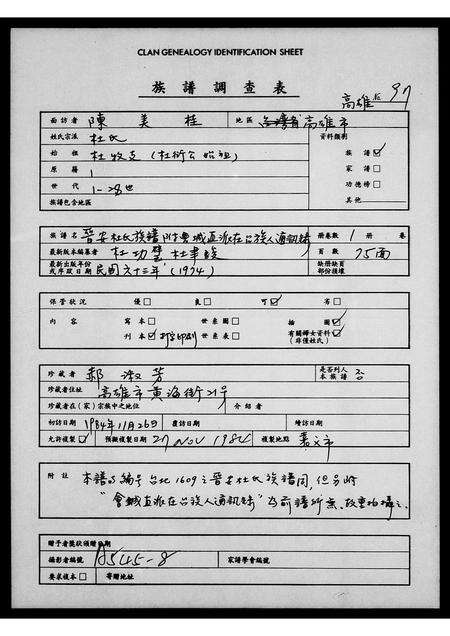 CLAN GENEALOGY IDENTIFICATION SHEET
族譜調查表
高雄 97
面訪者 陳美桂 地區 台灣省高雄市
姓氏宗派 杜氏 資料類別
始祖 杜牧之(杜衍公始祖) 族譜☑
原籍 1 家譜□
世代 1-28世 功德榜□
族譜包含地區 其他
族譜名 晉安杜氏族譜附 城直派在台族人通訊錄 冊卷數 1 冊 卷
最新版本編纂者 杜功 杜聿 頁數 75面
最新出版年份或序跋日期 民國六十三年(1974) 缺冊缺頁部份損壞
保管狀況 優□ 良□ 可☑ 劣□
內容 寫本□ 世系圖□ 插圖☑
刊本☑打字印刷 世系表□ 有關婦女資料☑(非僅姓氏)
珍藏者 郝淑芳 是否列入本族譜 否
珍藏者住址 高雄市黃海街21号
珍藏者在(家)宗族中之地位 介紹者
初訪日期 1984年11月26日 覆訪日期 續訪日期
允許複製☑ 預擬複製日期 27 NOV 1984 複製地點 嘉义市
附註 本譜与編号台北1609之晉安杜氏族譜同,但另附
"會城直派在台族人通訊錄"為前譜所無,故重拍攝之.
贈予者獎狀頒贈日期
攝影者編號 A545-8 家譜學會編號
要求複本□ 寄贈地址